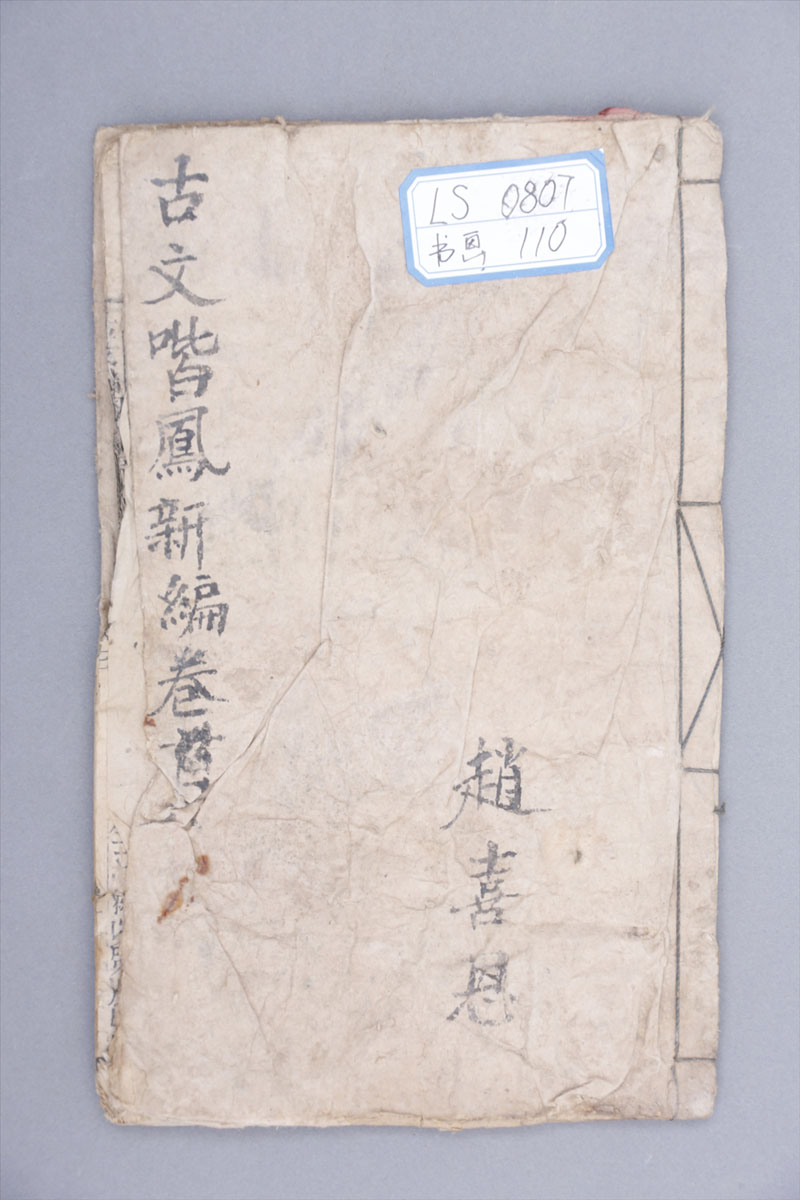 LS 0807
书画 110
古文喈鳳新編卷
趙喜恩